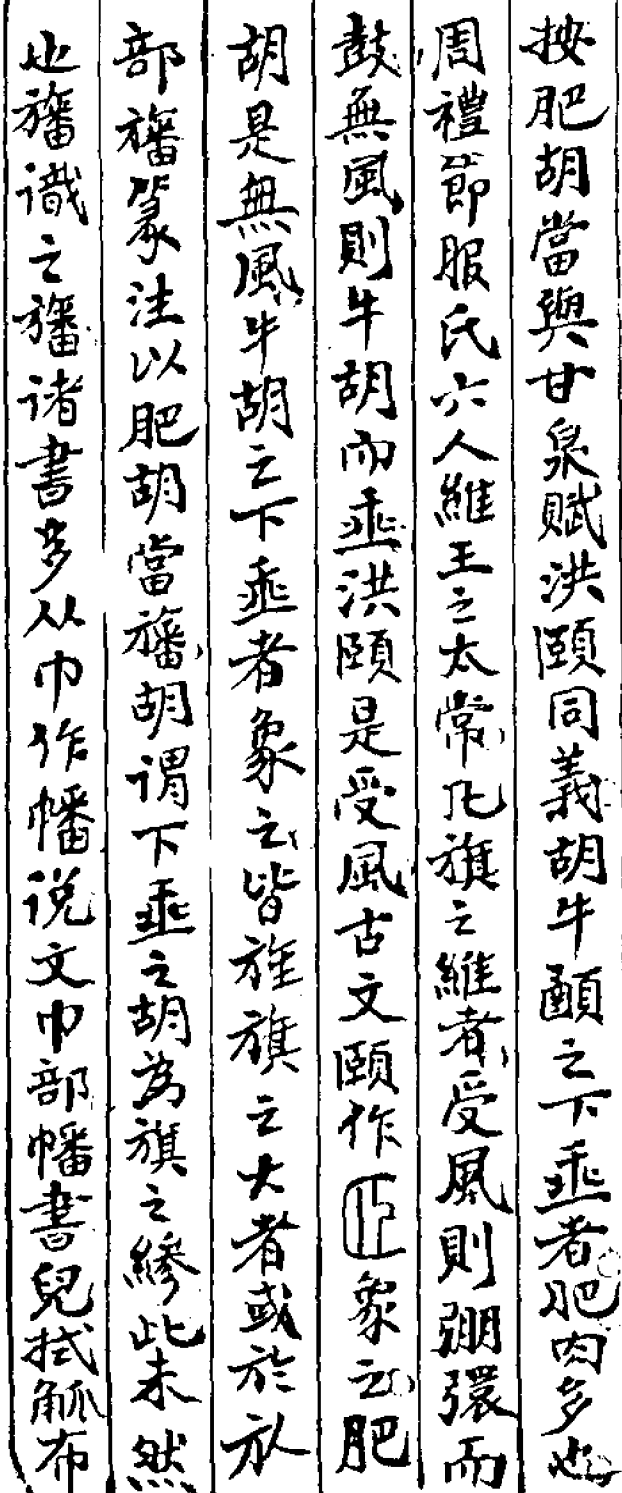 按肥胡當與甘泉賦洪頤同義胡牛顄之下垂者肥肉多也
周禮節服氏六人維王之太常凡旗之維者受風則弸彋而
鼓無風則牛胡而垂洪頤是受風古文頤作𦣝象之肥
胡是無風牛胡之下垂者象之皆旌旗之大者或於㫃
部旛篆注以肥胡當旛胡謂下垂之胡為旗之縿此未然
也旛識之旛諸書多从巾作幡说文巾部幡書兒拭觚布